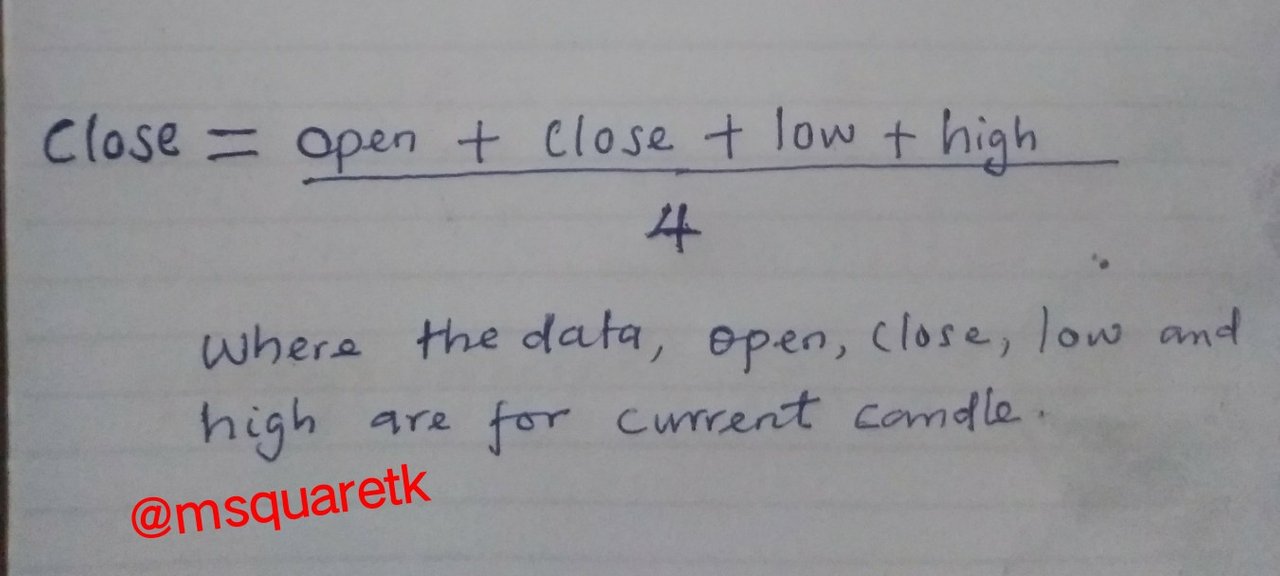 Close = open + close + low + high
4
Where the data, open, close, low and
high are for current candle.
@msquaretk